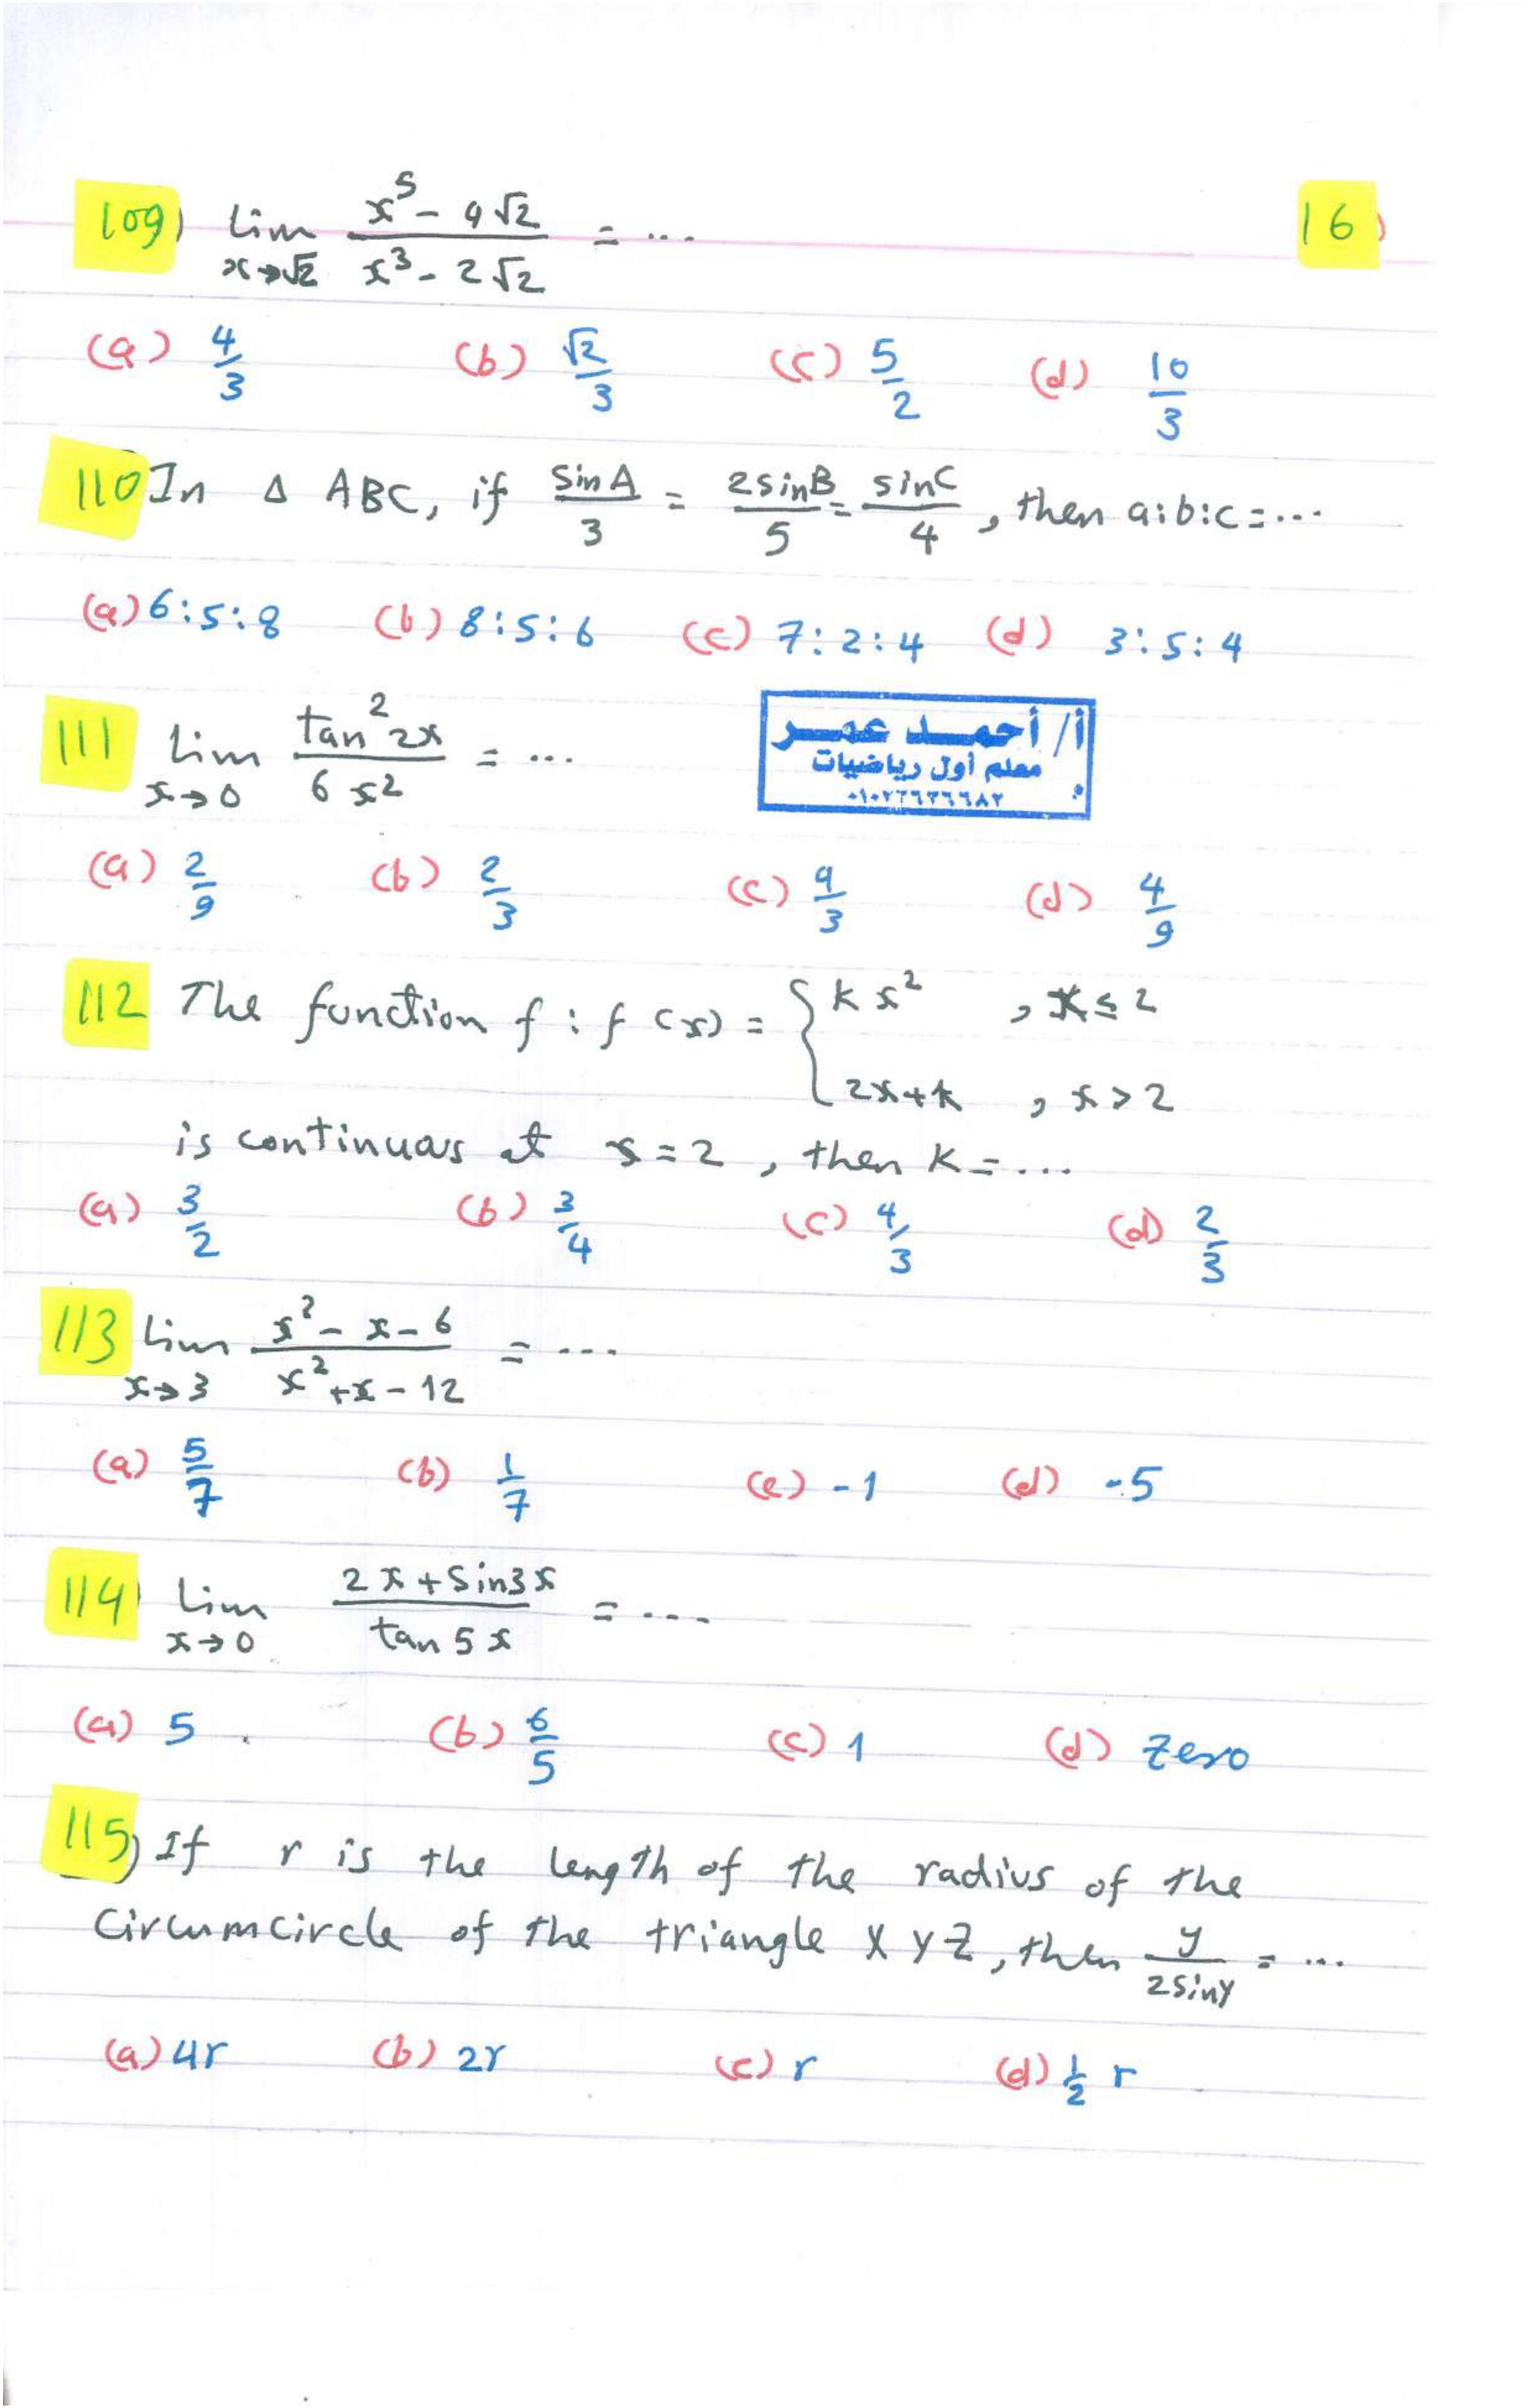 109) lim x→√2 (x^5 - 4√2)/(x^3 - 2√2) = ...
16)
(a) 4/3 (b) √2/3 (c) 5/2 (d) 10/3
110 In Δ ABC, if sinA/3 = 2sinB/5 = sinC/4, then a:b:c = ...
(a) 6:5:8 (b) 8:5:6 (c) 7:2:4 (d) 3:5:4
111 lim x→0 tan^2 2x / 6x^2 = ...
أ/ أحمد عمر
معلم أول رياضيات
(a) 2/9 (b) 2/3 (c) 4/3 (d) 4/9
112 The function f : f(x) = { kx^2 , x ≤ 2
2x+k , x > 2
is continuous at x = 2, then k = ...
(a) 3/2 (b) 3/4 (c) 4/3 (d) 2/3
113 lim x→3 (x^2 - x - 6)/(x^2 + x - 12) = ...
(a) 5/7 (b) 1/7 (c) -1 (d) -5
114) lim x→0 (2x + sin3x)/(tan 5x) = ...
(a) 5 (b) 6/5 (c) 1 (d) zero
115) If r is the length of the radius of the
circumcircle of the triangle XYZ, then y/2sinY = ...
(a) 4r (b) 2r (c) r (d) 1/2 r